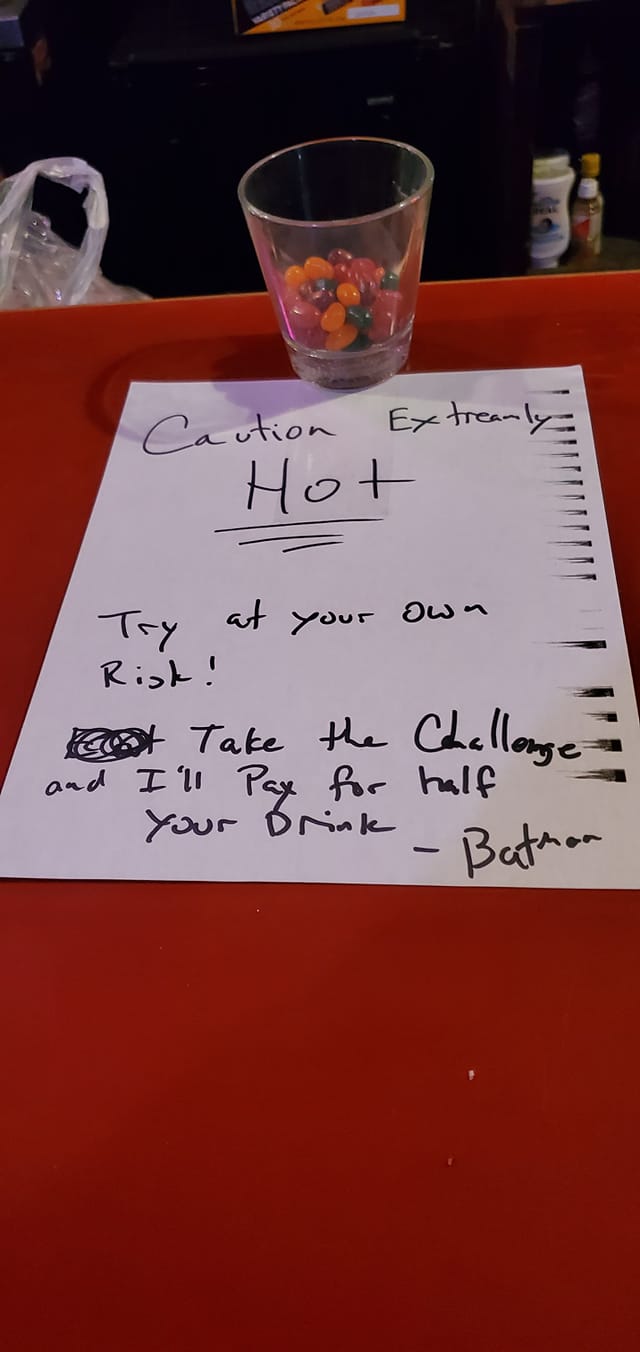 VARIETY PACK
Caution Extreamly
Hot
Try at your own
Risk!
Take the Challenge
and I'll Pay for half
your Drink
- Batman